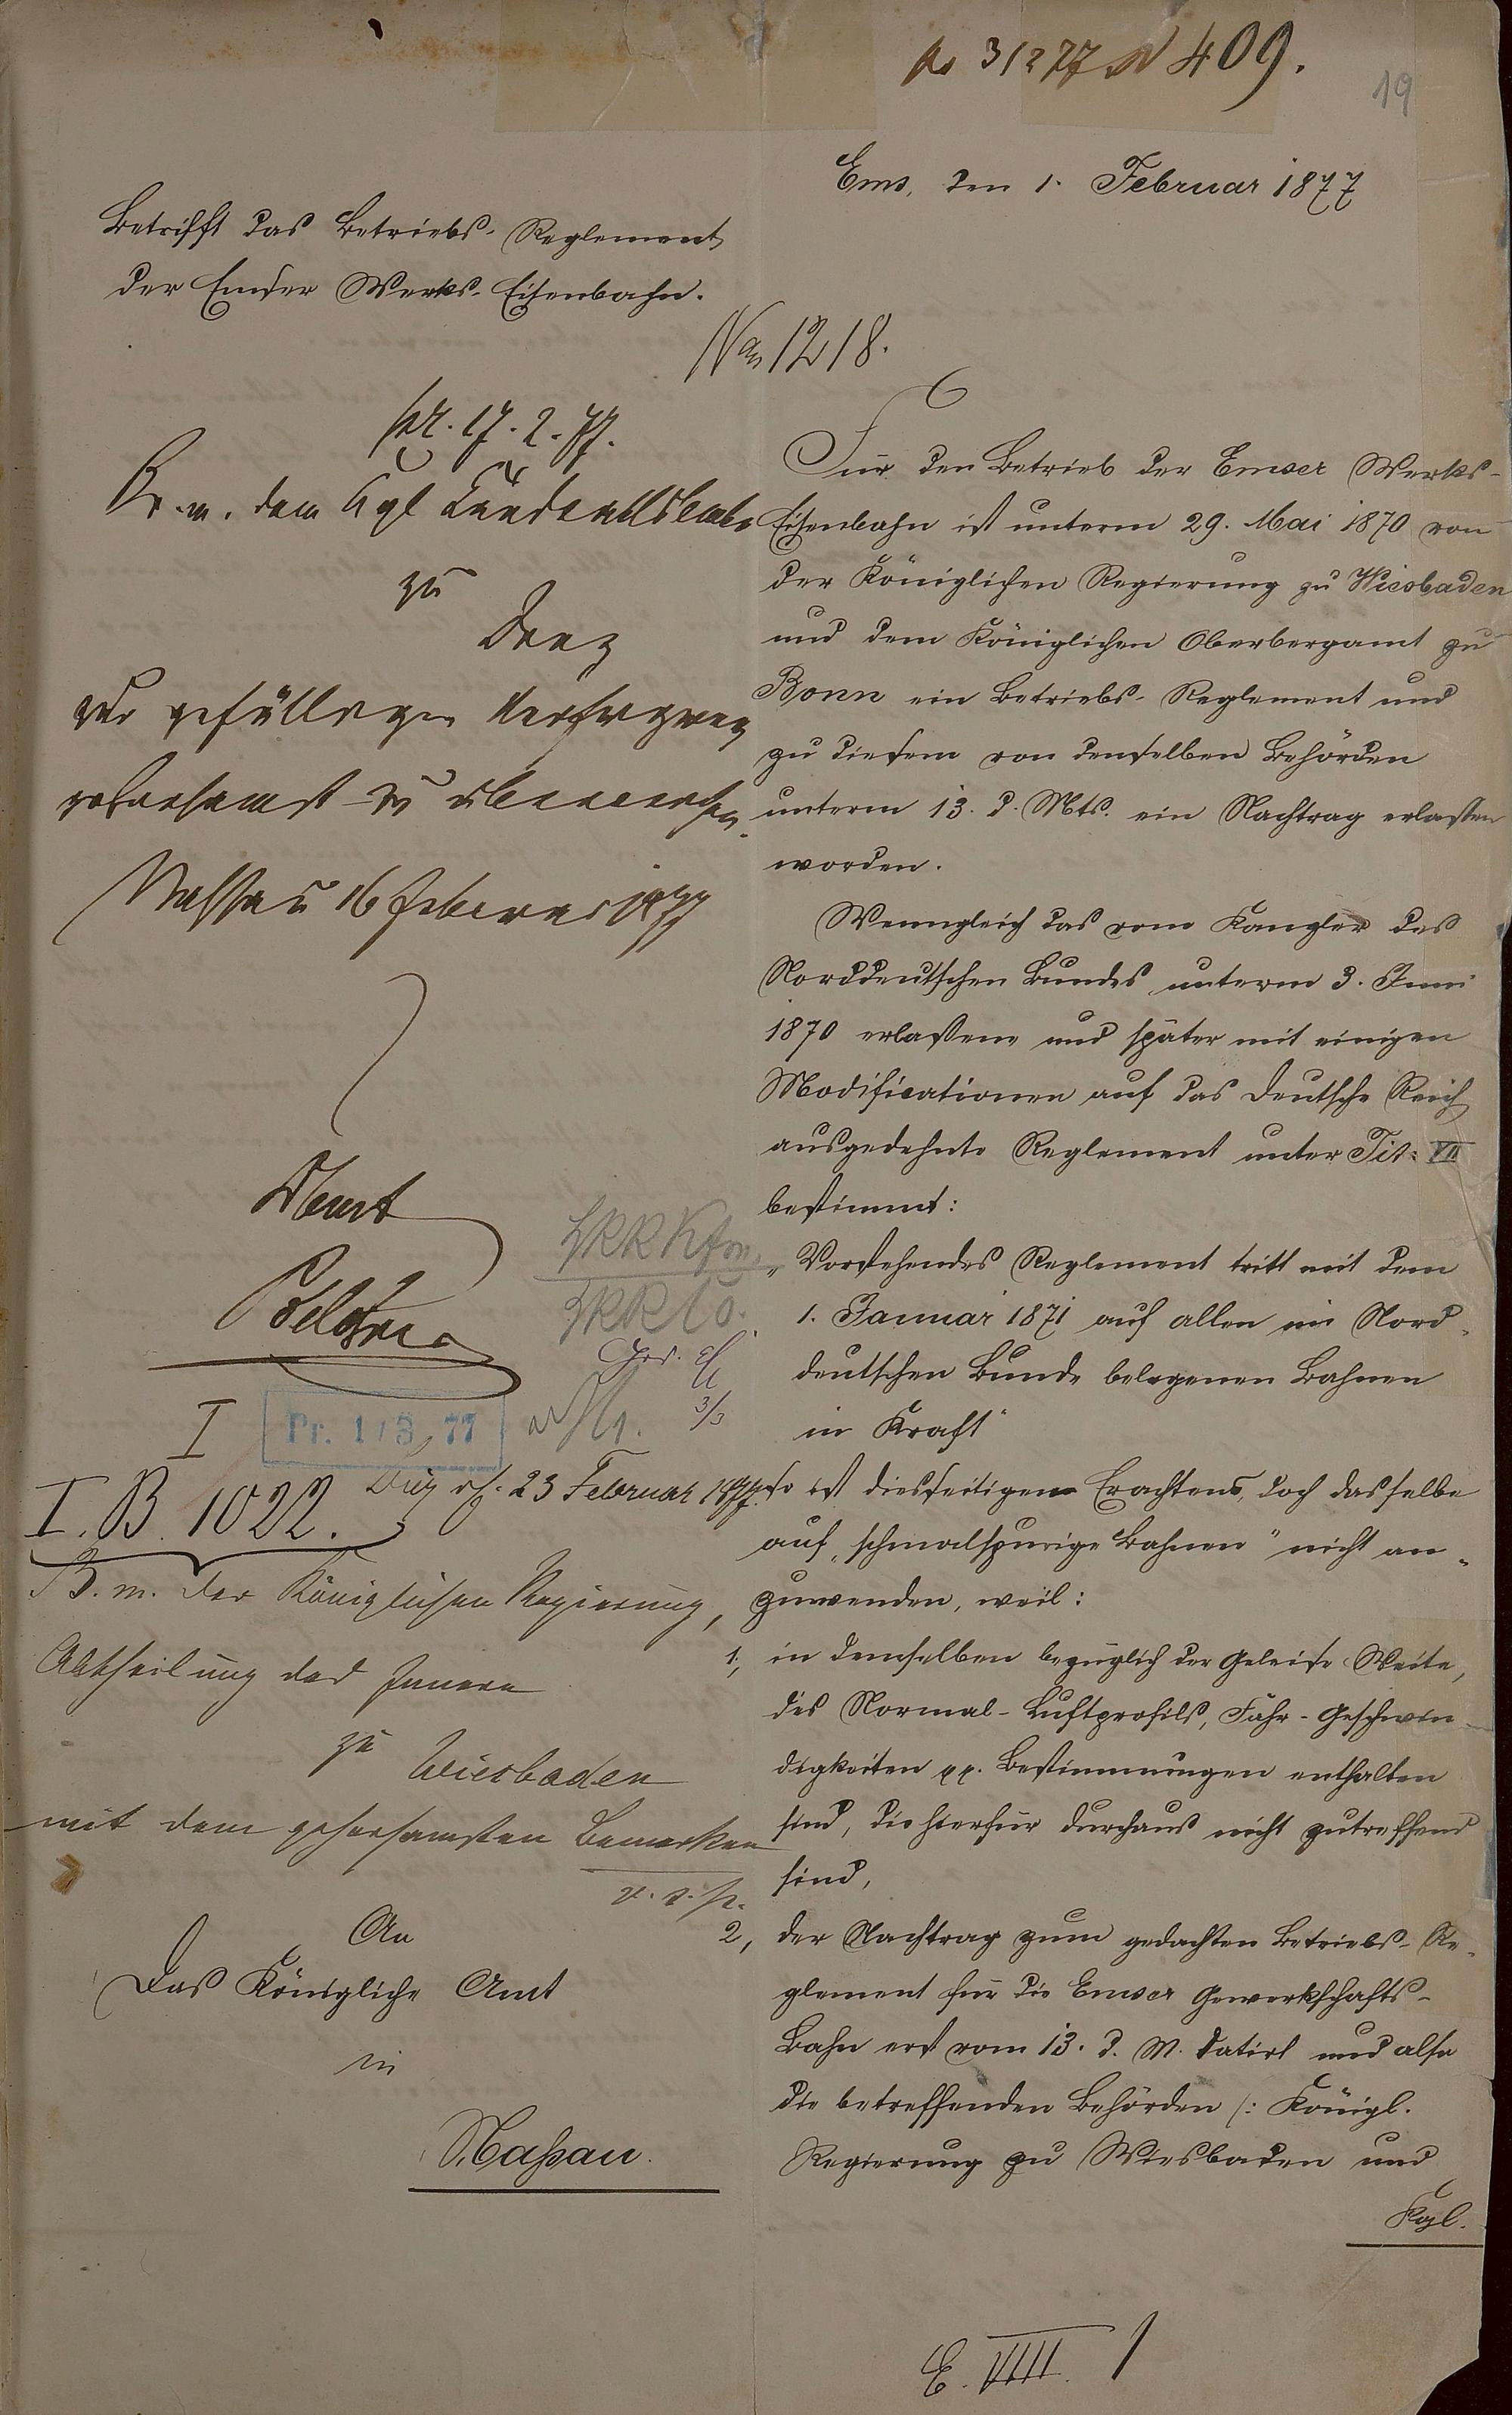 pr 3/2 77 N 409.
19
Ems, den 1. Februar 1877
Betrifft das Betriebs-Reglement
der Emser Werks-Eisenbahn.
No 1218.
pr. 17.2.77.
B. m. dem Kgl Landrathsamte
zu
Diez
zur gefälligen Verfügung
gehorsamst zu überreichen
Nassau 16 Februar 1877
Amt
I
Pr. 1/3, 77
I. B. 1022.
Diez d. 23 Februar 1877.
B. m. der Königlichen Regierung,
Abtheilung des Innern
zu
Wiesbaden
mit dem gehorsamsten Bemerken
v. s. p.
An
das Königliche Amt
in
Naßau.
Für den Betrieb der Emser Werks-
Eisenbahn ist unterm 29. Mai 1870 von
der Königlichen Regierung zu Wiesbaden
und dem Königlichen Oberbergamt zu
Bonn ein Betriebs-Reglement und
zu diesem von denselben Behörden
unterm 13. d. Mts. ein Nachtrag erlassen
worden.
Wenngleich das vom Kanzler des
Norddeutschen Bundes unterm 3. Juni
1870 erlassene und später mit einigen
Modificationen auf das deutsche Reich
ausgedehnte Reglement unter Tit: VII
bestimmt:
„Vorstehendes Reglement tritt mit dem
1. Januar 1871 auf allen im Nord-
deutschen Bunde belegenen Bahnen
in Kraft"
so ist diesseitigen Erachtens, doch dasselbe
auf „schmalspurige Bahnen" nicht an-
zuwenden, weil:
1., in demselben bezüglich der Geleise-Weite,
des Normal-Luftprofils, Fahr-Geschwin-
digkeiten pp. Bestimmungen enthalten
sind, die hierfür durchaus nicht zutreffend
sind,
2, der Nachtrag zum gedachten Betriebs-Re-
glement für die Emser Gewerkschafts-
Bahn erst vom 13. d. M. datirt und also
die betreffenden Behörden /: Königl.
Regierung zu Wiesbaden und
Kgl.
E. VIIII. 1